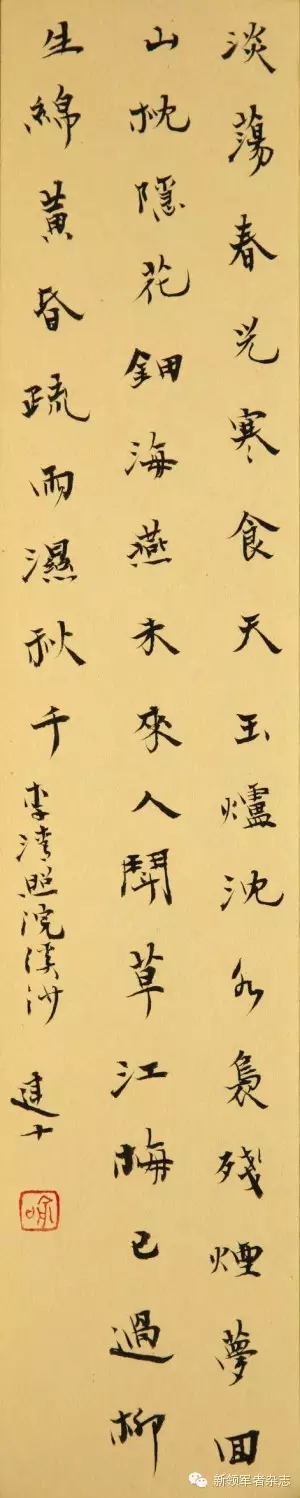 淡蕩春光寒食天玉爐沈水裊殘煙夢回
山枕隱花鈿海燕未來人鬪草江梅已過柳
生綿黃昏疏雨濕秋千李清照浣溪沙
喻
新领军者杂志